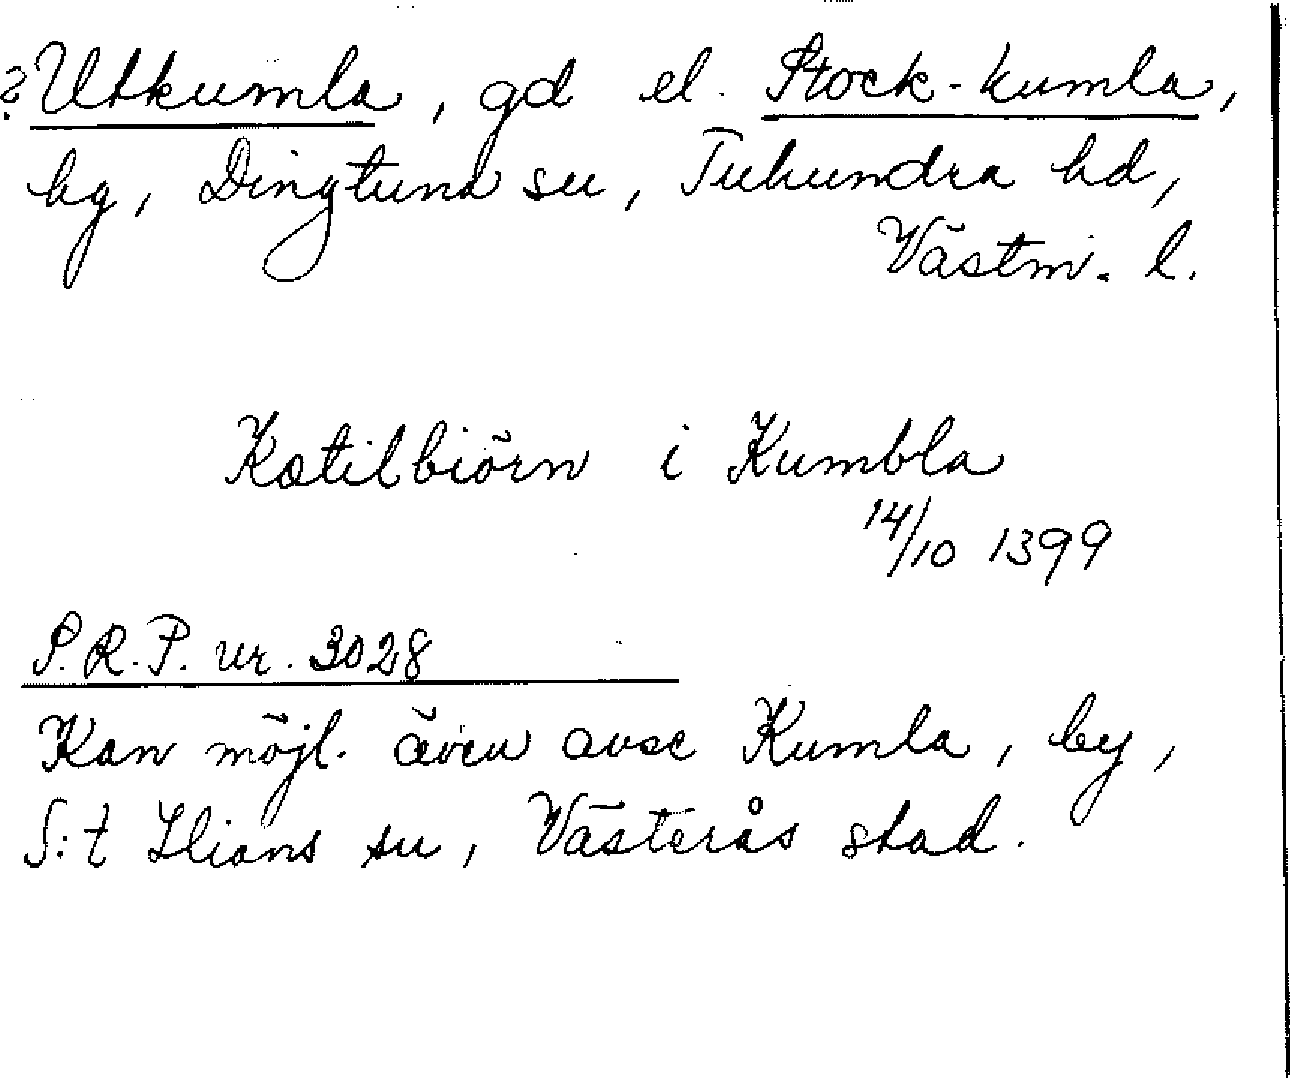 ? Utkumla, gd el. Stock-kumla,
by, Dingtuna sn, Tuhundra hd,
Västm. l.
Kætilbiörn i Kumbla
14/10 1399
S.R.P. nr. 3028
Kan möjl. även avse Kumla, by,
S:t Ilians sn, Västerås stad.